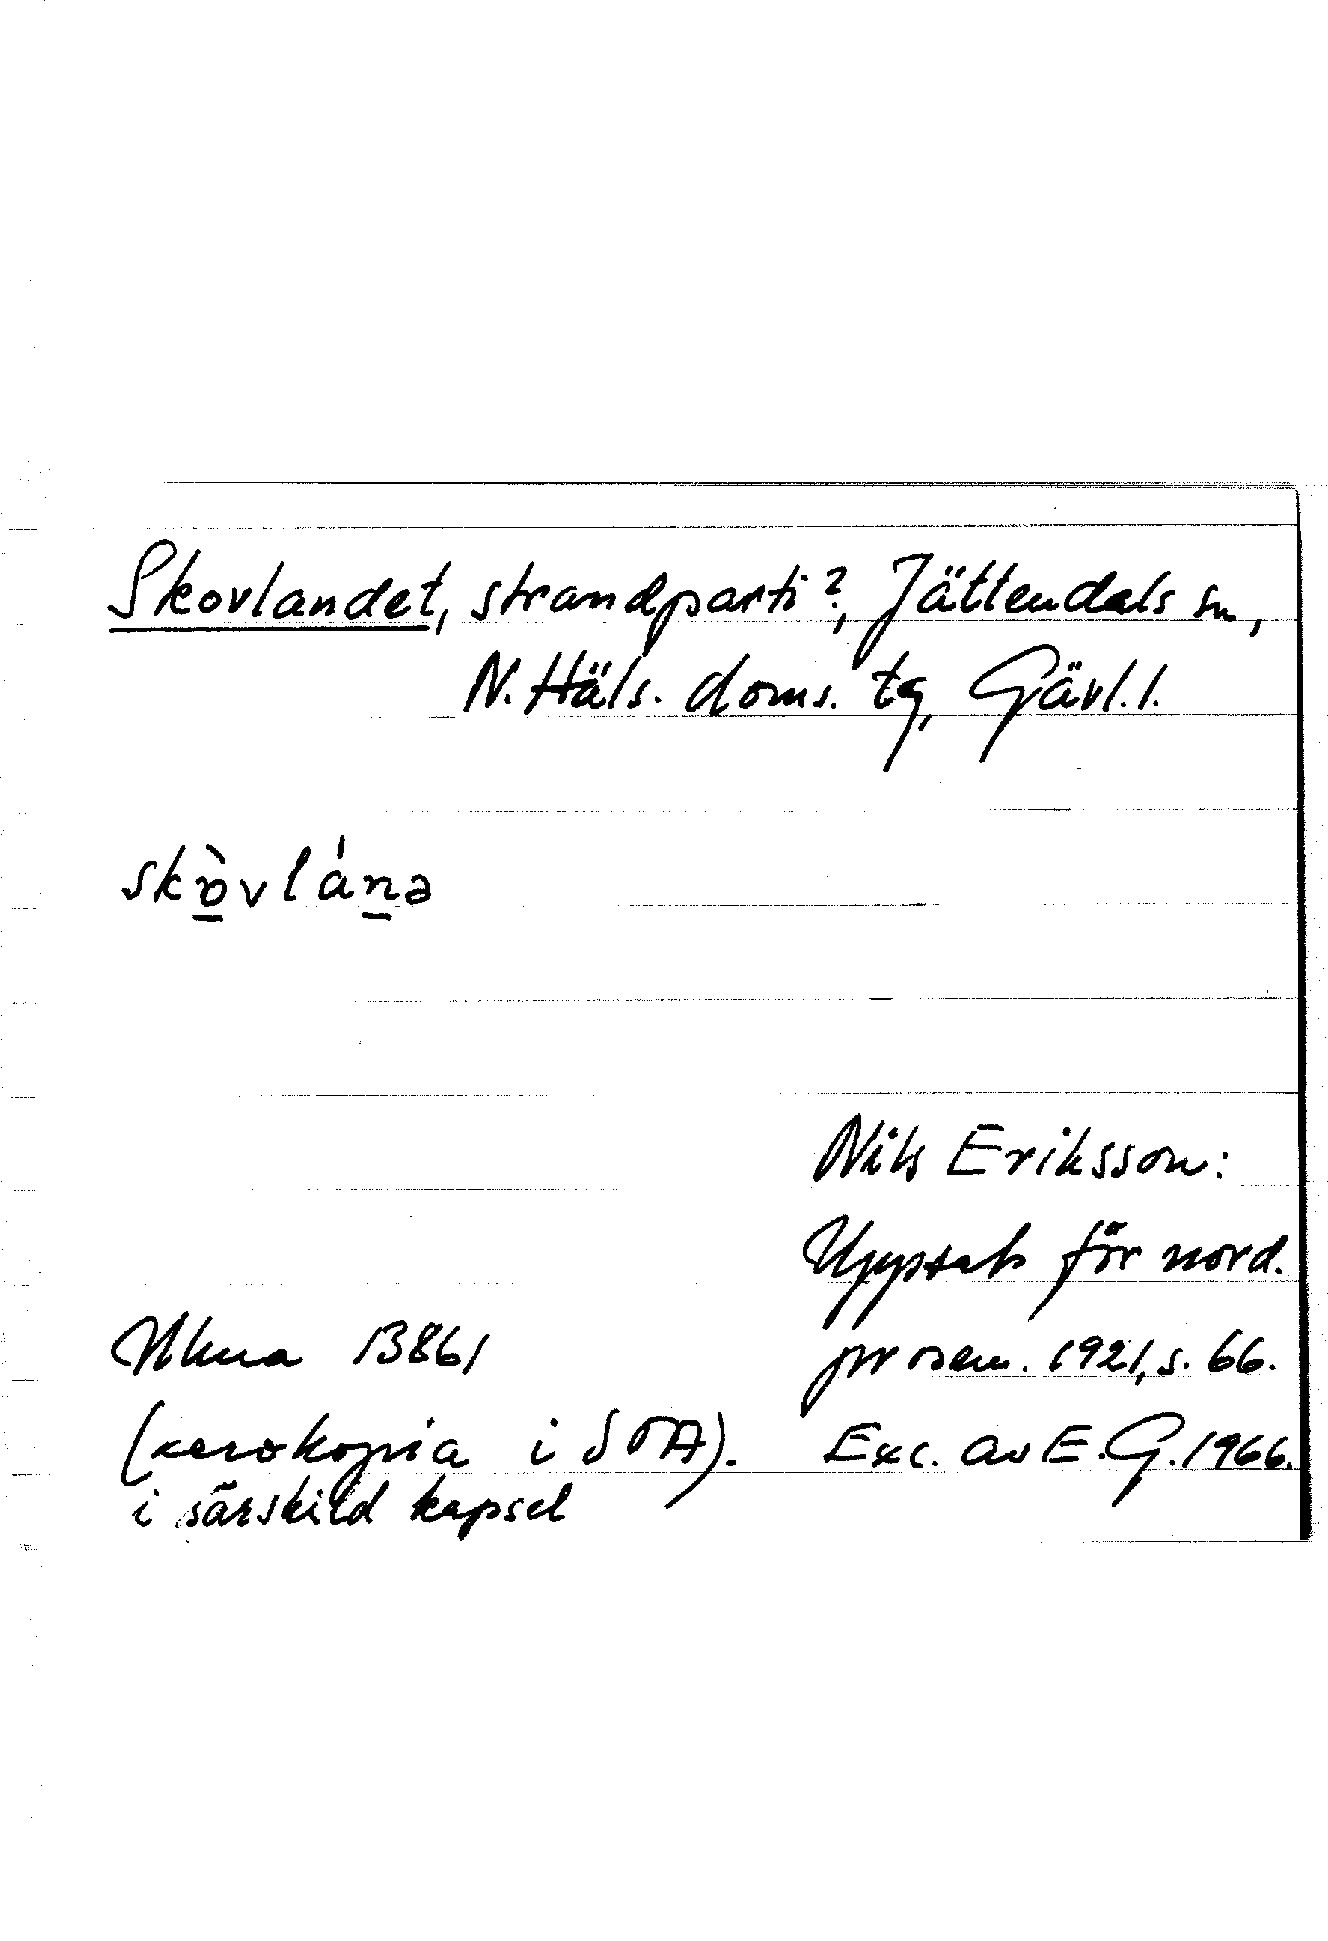 Skovlandet, strandparti?, Jättendals sn,
N. Häls. doms. tg, Gävl. l.
skòvlánə
Nils Eriksson:
Uppsats för nord.
prosem. 1921, s. 66.
Exc. av E. G. 1966.
Ukua B861
(xerokopia i SOA).
i särskild kapsel